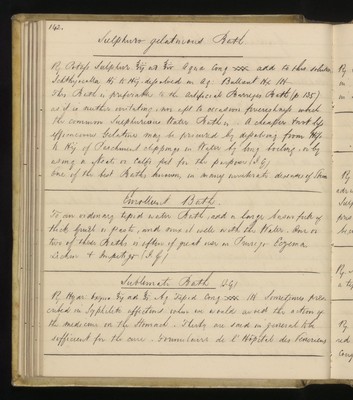 142.
Sulphuro gelatinous Bath
℞ Potass Sulphur ℥ij ad ℥iv Aqua Cong xxx add to this solution
Ichthyocolla ℔j to ℔ij dissolved in Aq. Bullient
This Bath is preferable to the Artificial Bareges Bath (p 135)
as it is neither irritating, nor apt to occasion feverishness which
the common Sulphureous Water Bath is. A cheaper but less
efficacious Gelatine may be procured by dissolving from
to ℔ij of Parchment clippings in Water by long boiling, or by
using a Neat or Calfs feet for the purpose (J.G)
One of the best Baths known in many inveterate diseases of Skin
Emollient Bath.
To an ordinary tepid water Bath add a large basin full of
thick Gruel or paste, and mix it well with the Water. One or
two of these Baths is often of great use in Prurigo Eczema
Lichen & Impetigo (J.G)
Sublimate Bath (J.G)
℞ Hydr. Aq Tepid Cong xxx M Sometimes pres-
cribed in Syphilitic affections when we would avoid the action of
the medicine on the Stomach. Thirty are said in general to be
sufficient for the cure. Formulaire de l'Hôpital des Vénériens